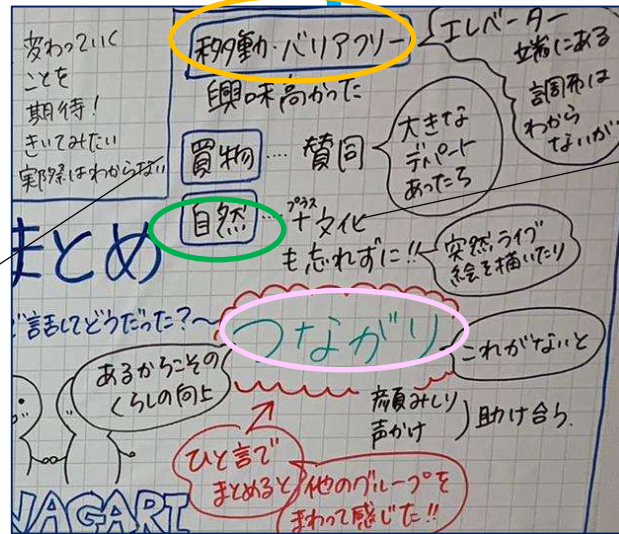 変わっていく
ことを
期待!
きいてみたい
実際はわからない
移動・バリアフリー
興味高かった
エレベーター
端にある
調布は
わから
ないが
買物…賛同
大きな
デパート
あったら
自然…+文化
プラス
も忘れずに!!
突然ライブ
絵を描いたり
まとめ
話してどうだった?〜
つながり
これがないと
あるからこその
くらしの向上
顔みしり
声かけ
助け合ら
ひと言で
まとめると
他のグループを
まわって感じた!!
NAGARI